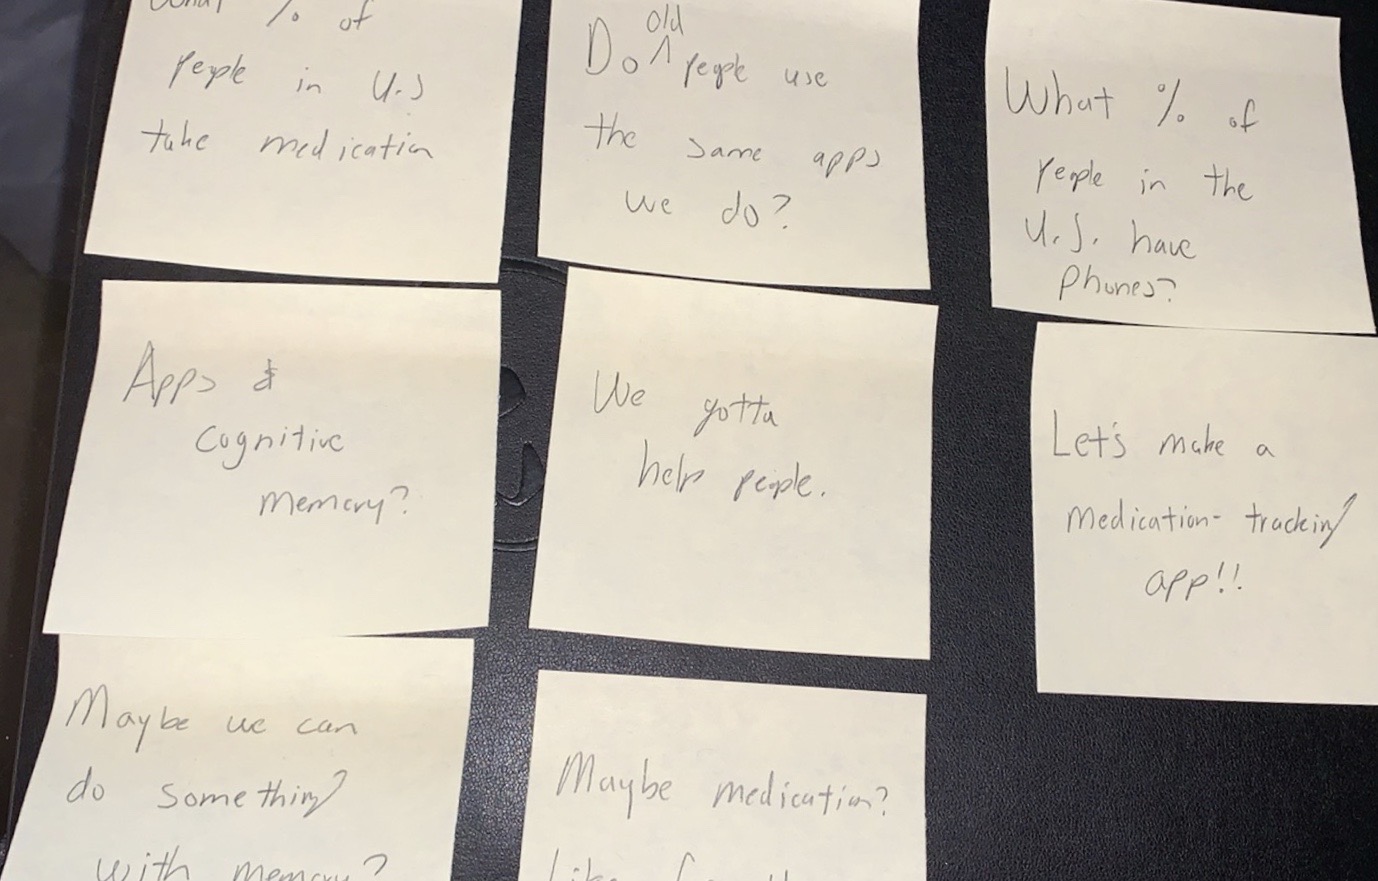 What % of
people in U.S
take medication
Do old people use
the same apps
we do?
What % of
people in the
U.S. have
phones?
Apps &
cognitive
memory?
We gotta
help people.
Let's make a
medication-tracking
app!!
Maybe we can
do something
with memory?
Maybe medication?
Like